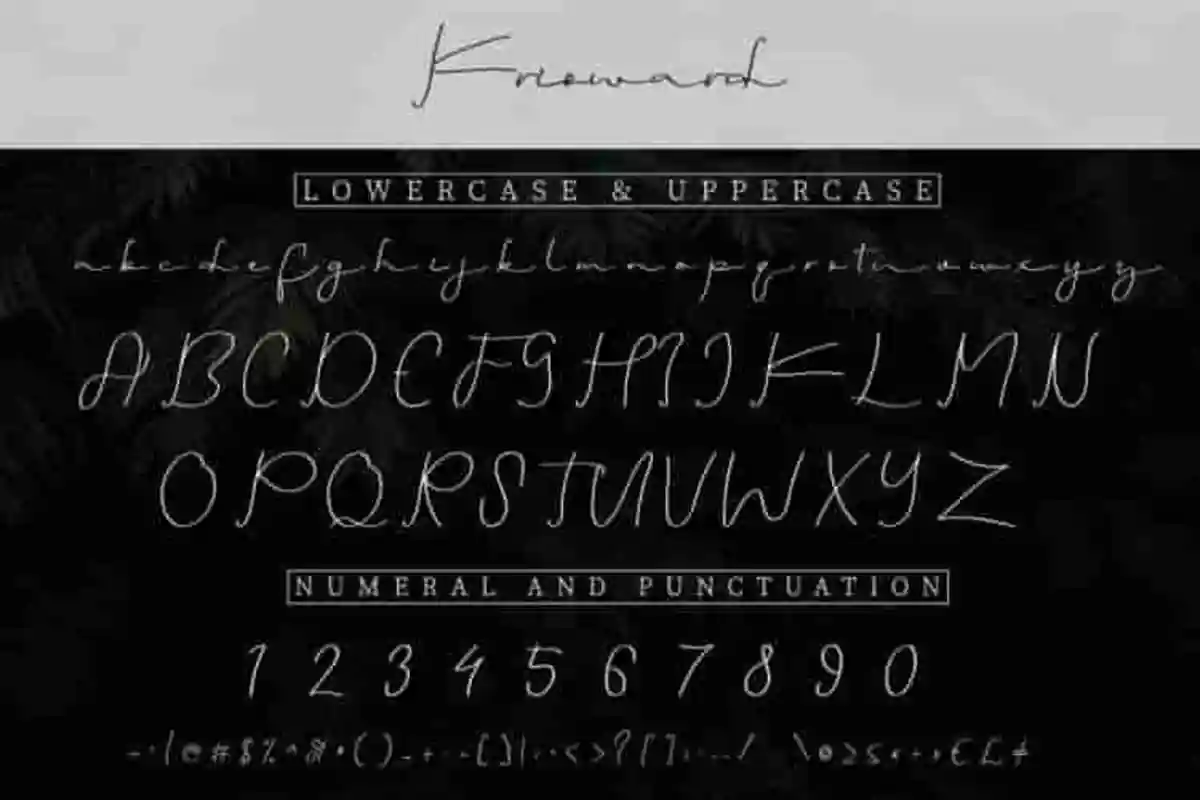 Krisward
LOWERCASE & UPPERCASE
a b c d e f g h i j k l m n o p q r s t u v w x y z
A B C D E F G H I J K L M N
O P Q R S T U V W X Y Z
NUMERAL AND PUNCTUATION
1 2 3 4 5 6 7 8 9 0